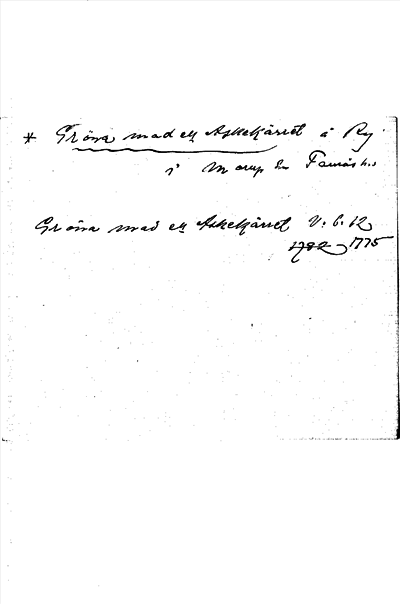 * Gröna mad el. Askekjärret å Ry
i Morup sn Faurås h.
Gröna mad el. Askekjärret V: 6: 12
1782 1775